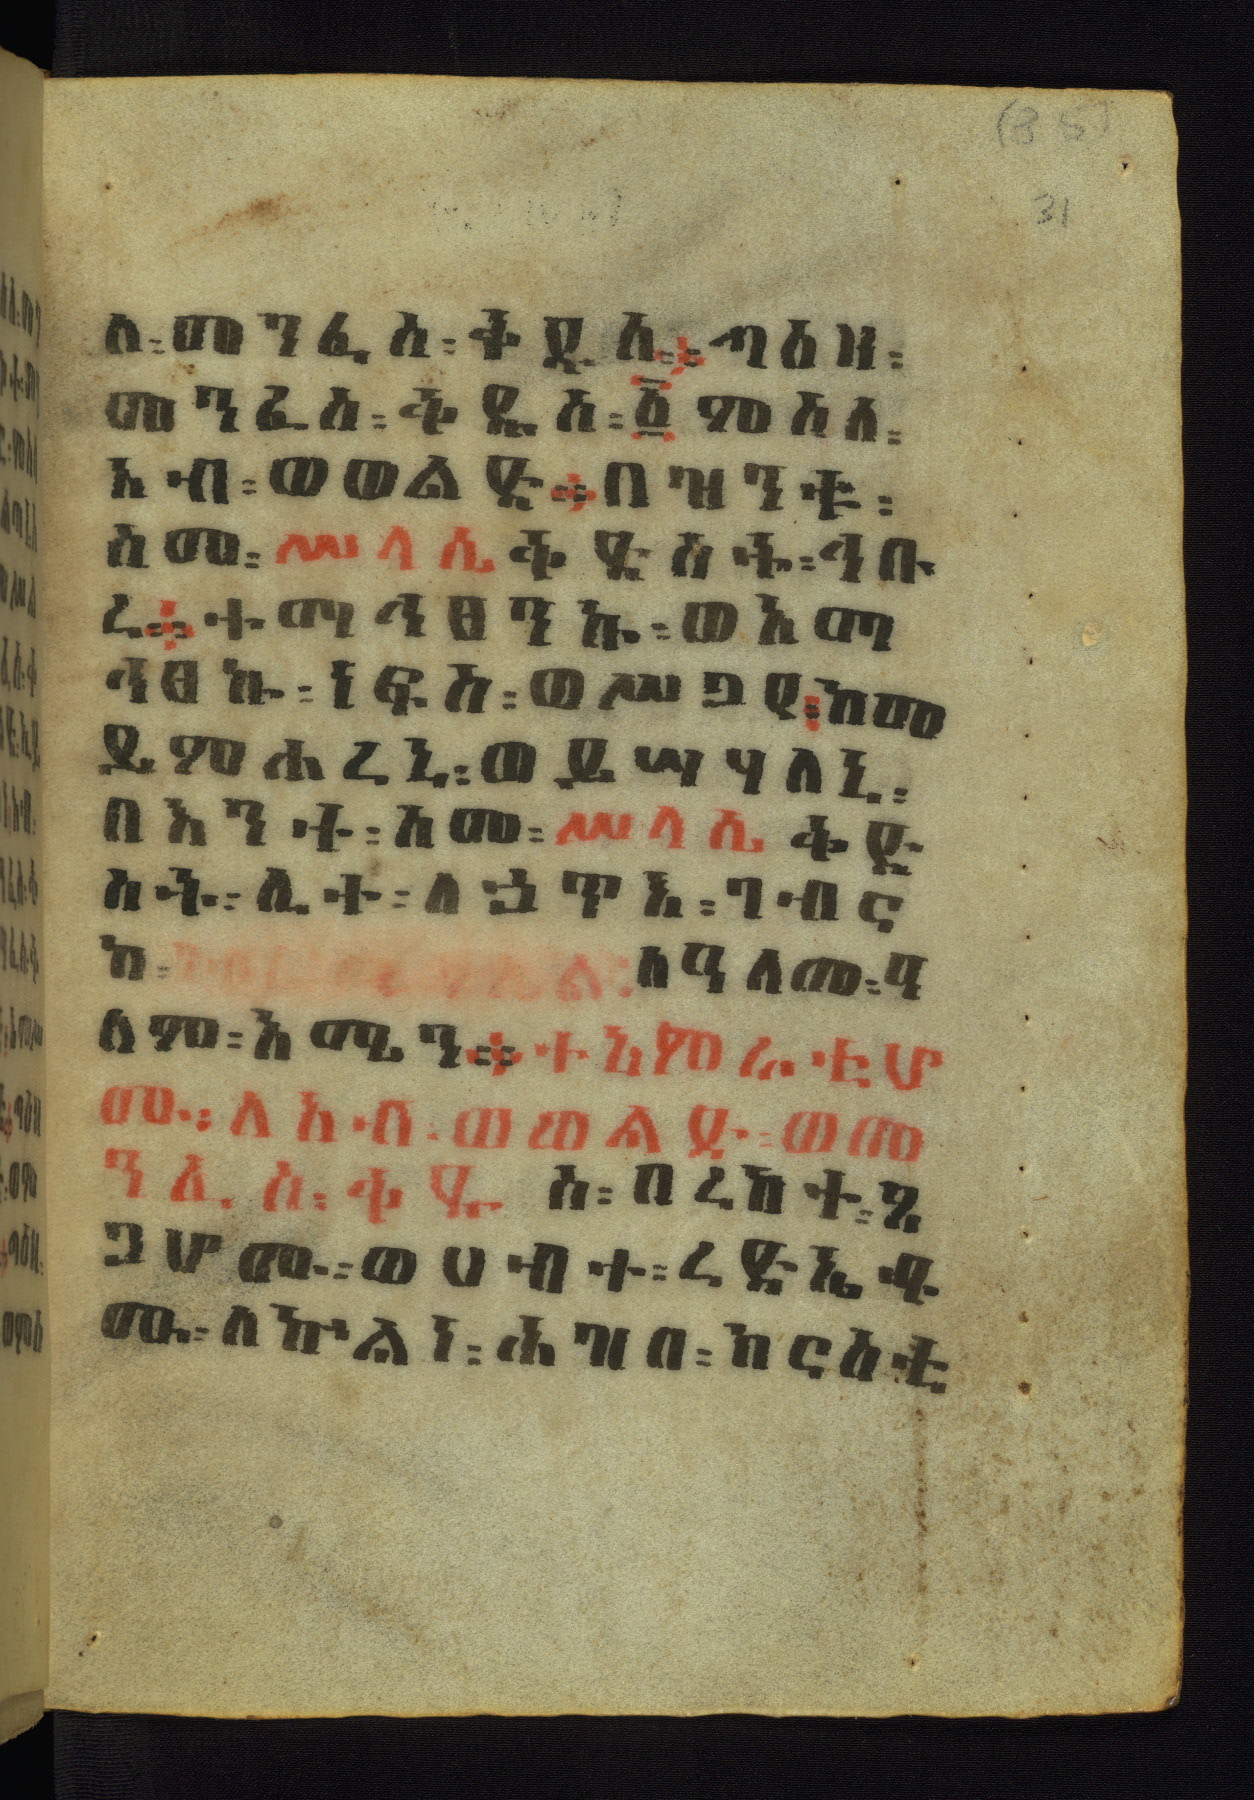 (35)
31
ስ፡መንፈስ፡ቅዱስ፡፡ጣዕዝ፡
መንፈስ፡ቅዱስ፡፩ምስለ፡
አብ፡ወወልድ፡፡በዝንቱ፡
ስመ፡ሥላሴቅዱስት፡ኅቡ
ረ፡፡ተማኅፀንኩ፡ወአማ
ኅፀኩ፡ነፍስ፡ወሥጋየ፡ከመ
ይምሐረኒ፡ወይሣሃለኒ፡
በእንተ፡ስመ፡ሥላሴቅድ
ስት፡ሊተ፡ለኃጥእ፡ገብር
ከ፡ለዓለመ፡ዓ
ለም፡አሜን፡፡ተአምራቲሆ
ሙ፡ለአብ፡ወወልድ፡ወመ
ንፈስ፡ቅዱስ፡በረከት፡ጸ
ጋሆሙ፡ወሀብተ፡ረድኤቶ
ሙ፡ለኵልነ፡ሕዝበ፡ክርስቲ